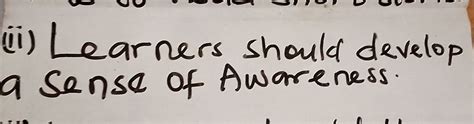 (ii) Learners should develop
a Sense of Awareness.